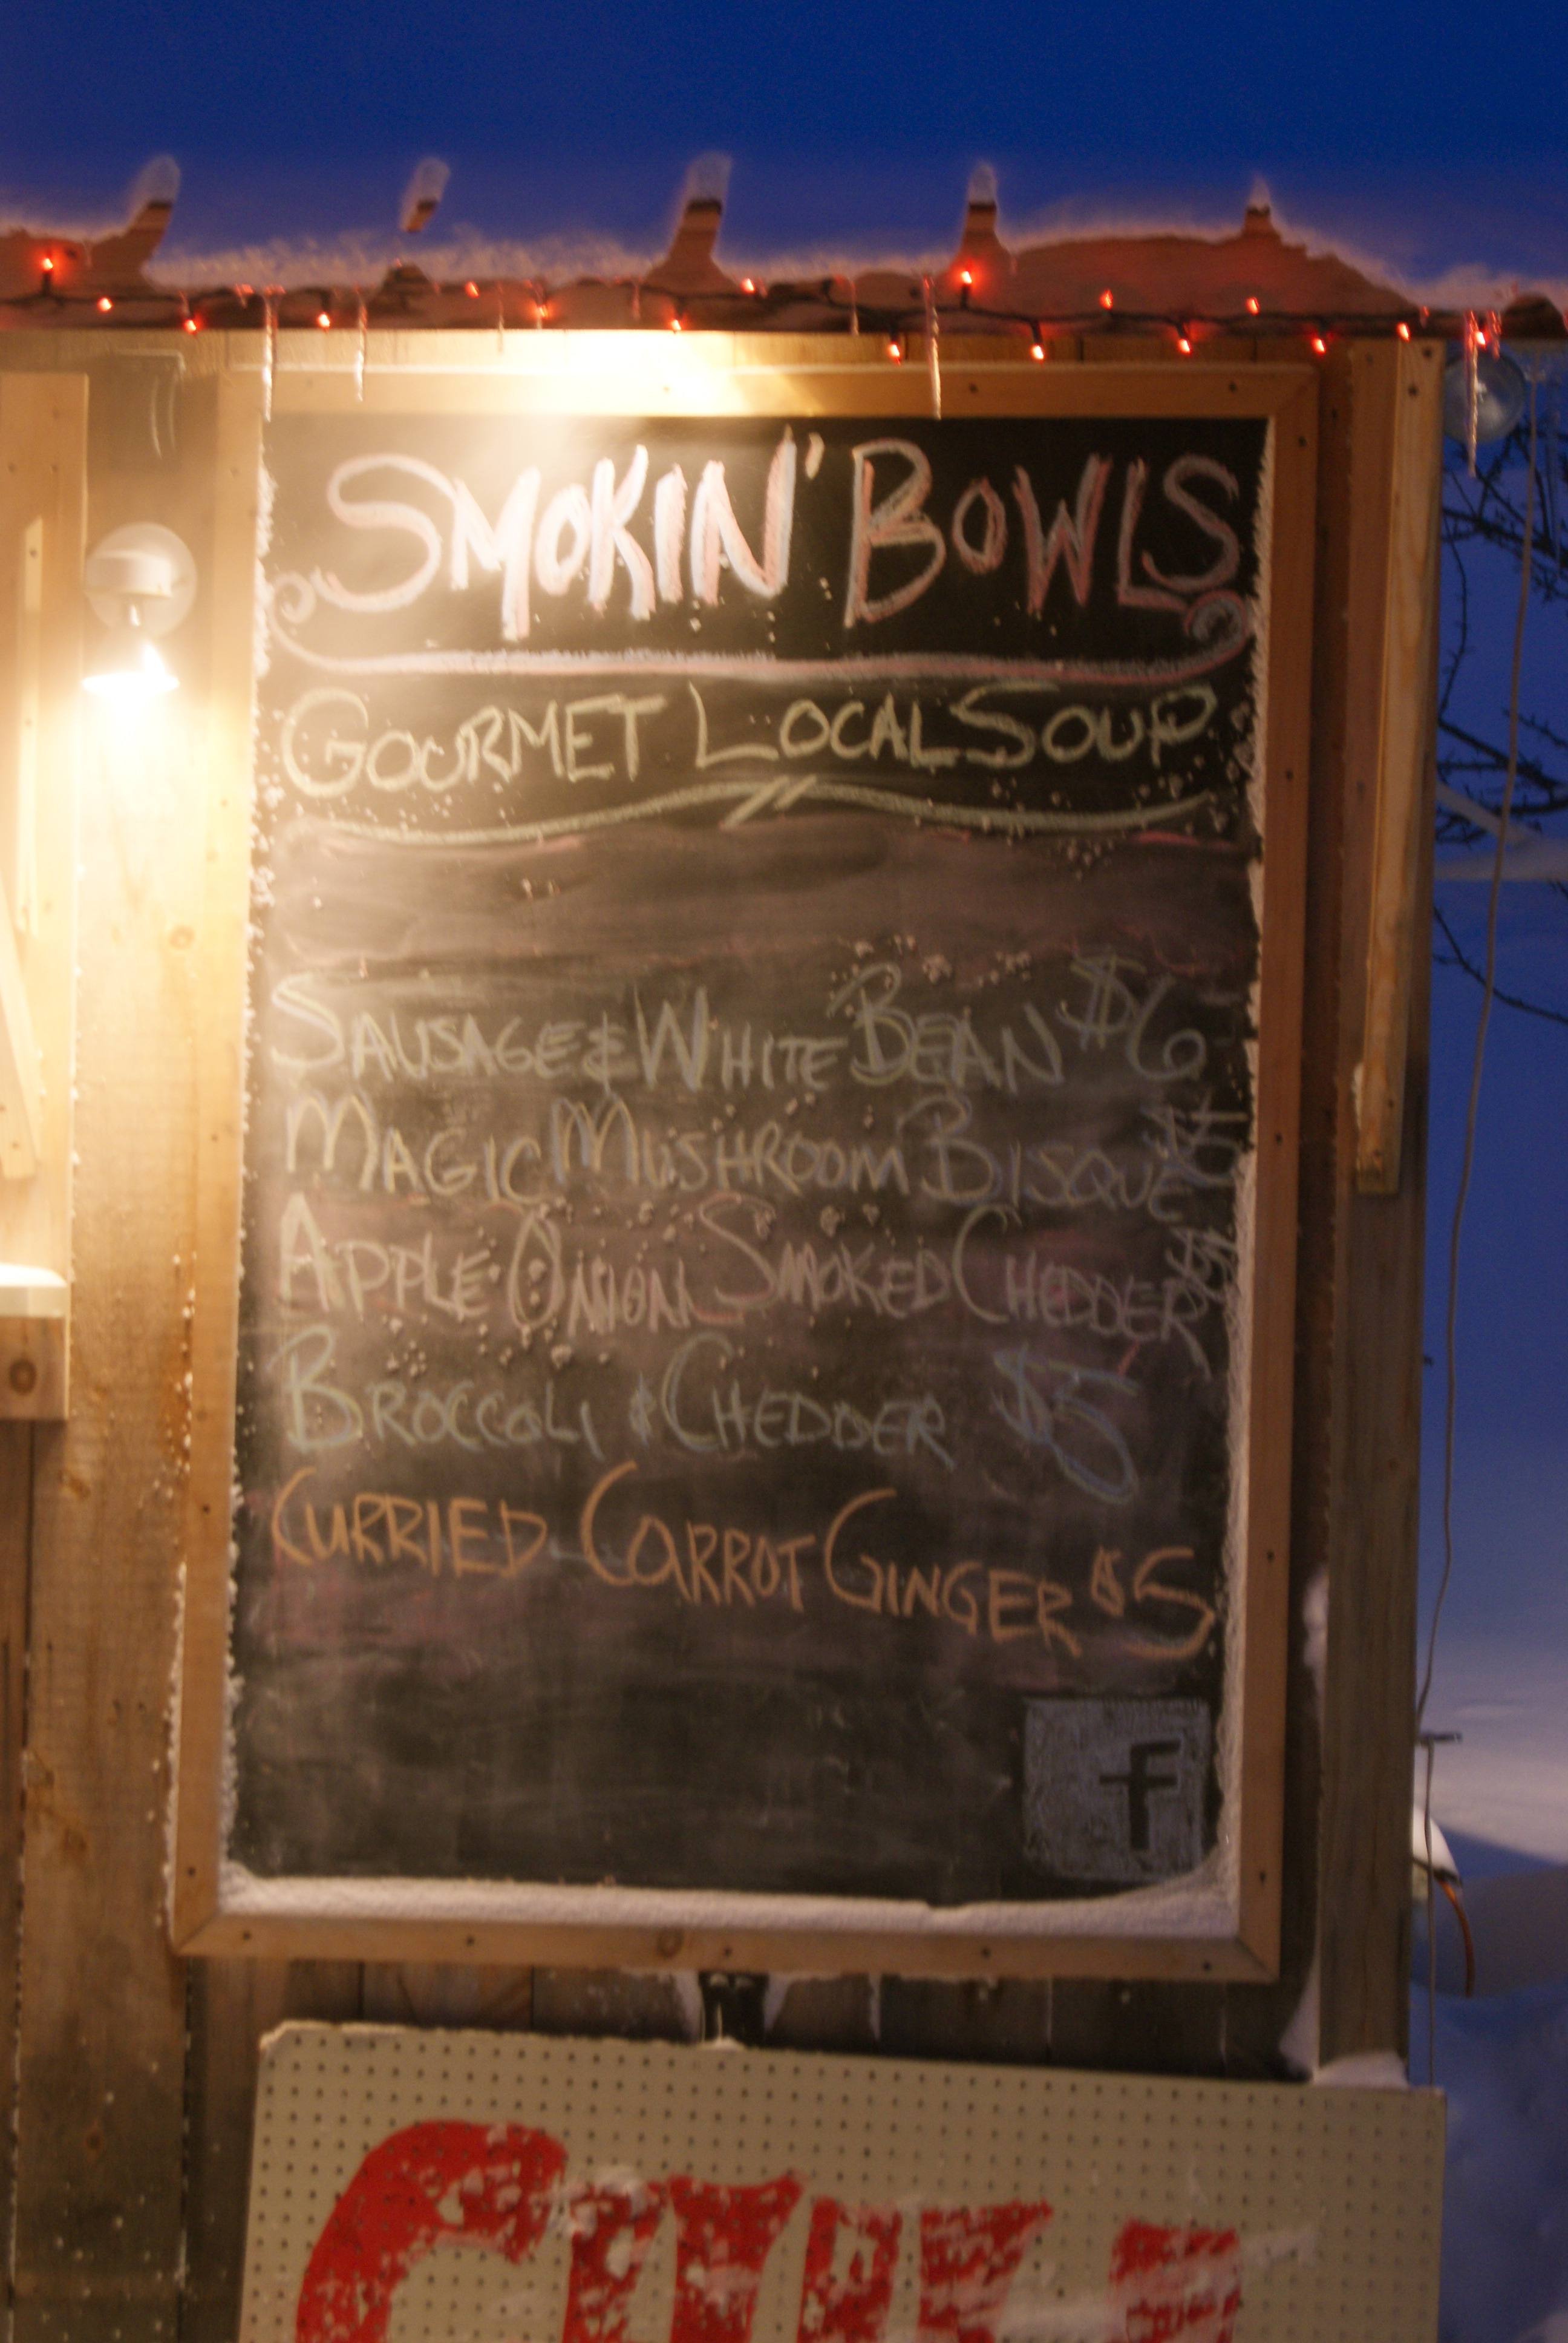 SMOKIN' BOWLS
GOURMET LOCAL SOUP
SAUSAGE & WHITE BEAN $6
MAGIC MUSHROOM BISQUE $5
APPLE ONION SMOKED CHEDDER $5
BROCCOLI & CHEDDER $5
CURRIED CARROT GINGER $5
f